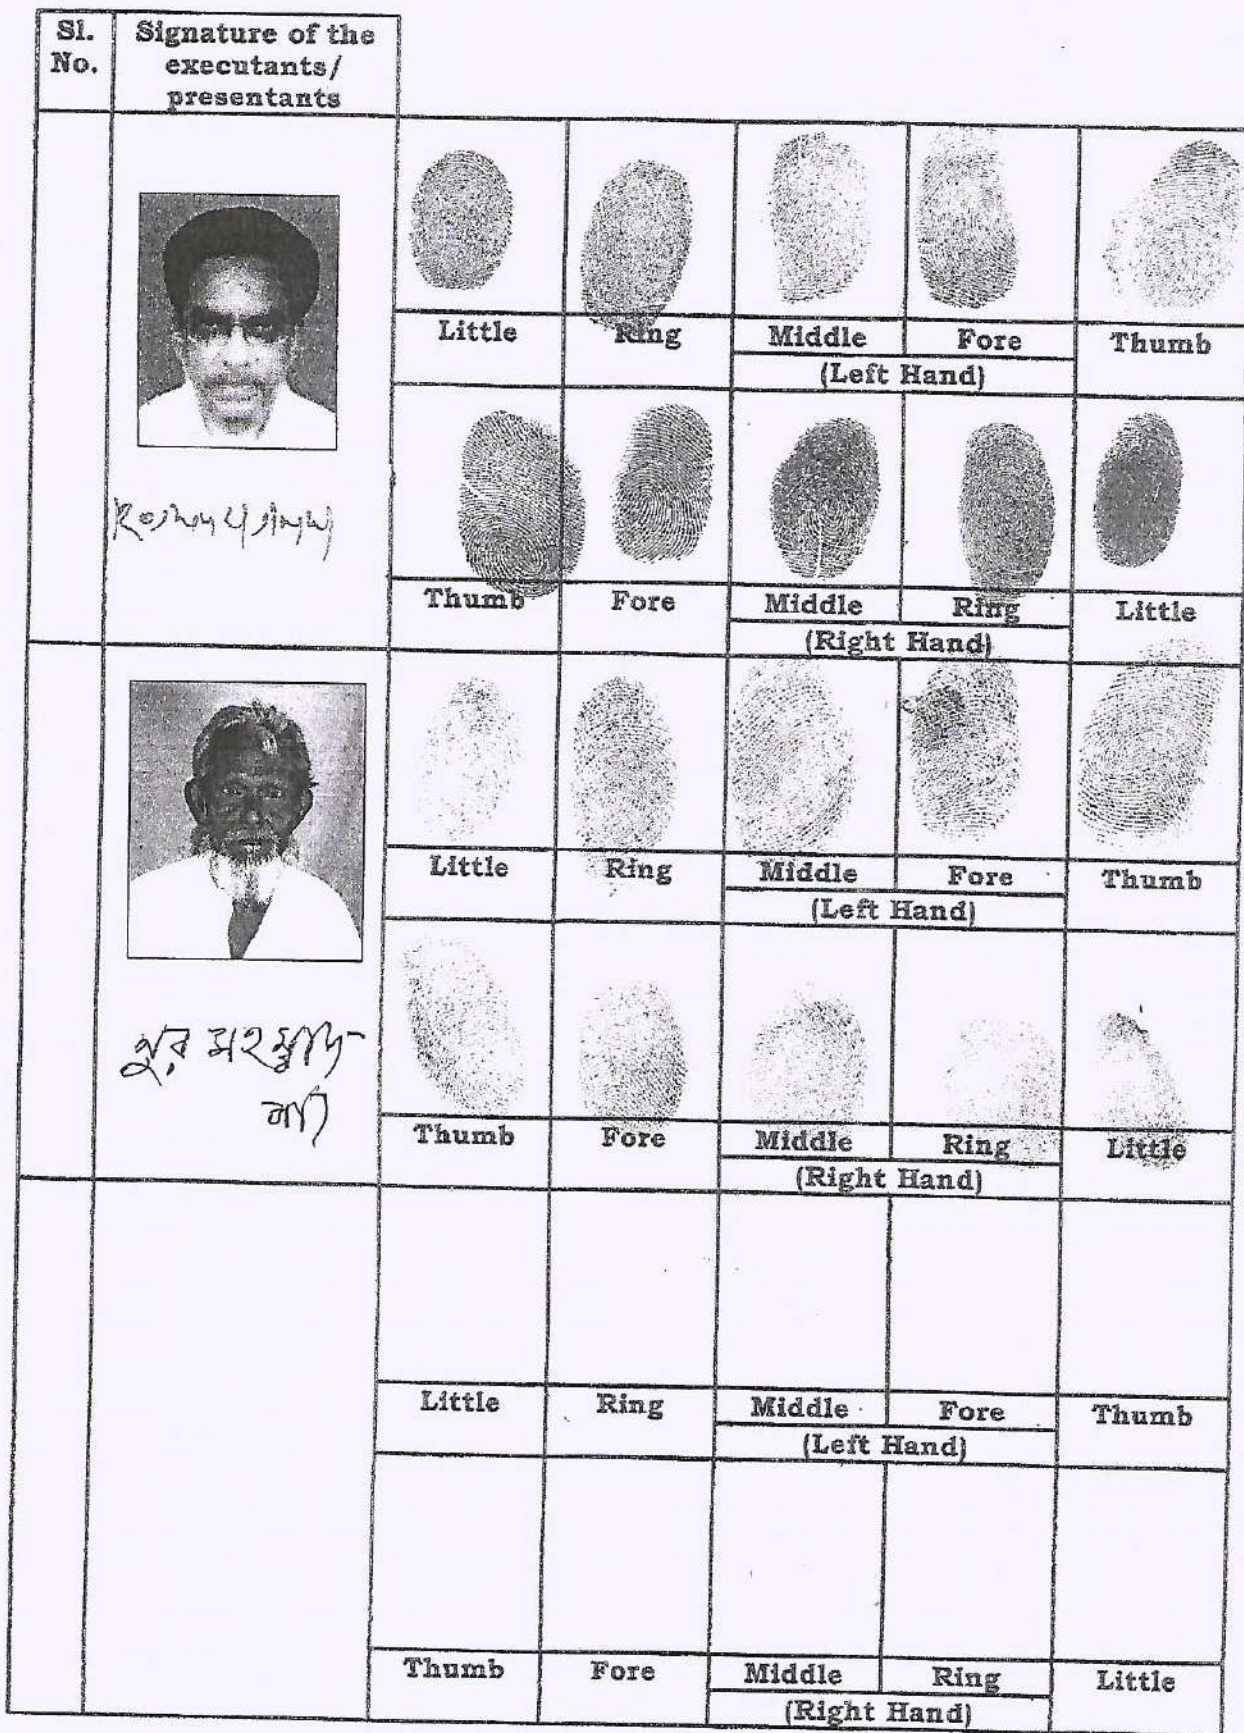 Sl. No.
Signature of the executants/ presentants
Little Ring Middle Fore Thumb
(Left Hand)
Thumb Fore Middle Ring Little
(Right Hand)
Little Ring Middle Fore Thumb
(Left Hand)
নুর মহম্মদ
Thumb Fore Middle Ring Little
(Right Hand)
Little Ring Middle Fore Thumb
(Left Hand)
Thumb Fore Middle Ring Little
(Right Hand)